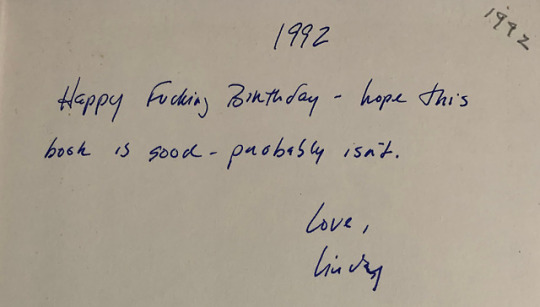 1992
1992
Happy Fucking Birthday - hope this
book is good - probably isn't.
Love,
Lindsay